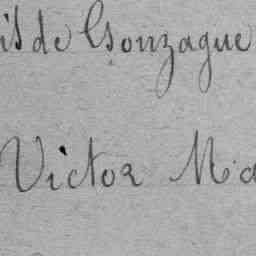 is de Gonzague
Victor Ma